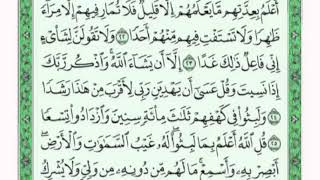 أَعْلَمُ بِعِدَّتِهِم مَّا يَعْلَمُهُمْ إِلَّا قَلِيلٌ فَلَا تُمَارِ فِيهِمْ إِلَّا مِرَآءً
ظَٰهِرًا وَلَا تَسْتَفْتِ فِيهِم مِّنْهُمْ أَحَدًا ٢٢ وَلَا تَقُولَنَّ لِشَا۟ىْءٍ
إِنِّي فَاعِلٌ ذَٰلِكَ غَدًا ٢٣ إِلَّآ أَن يَشَآءَ ٱللَّهُ وَٱذْكُر رَّبَّكَ
إِذَا نَسِيتَ وَقُلْ عَسَىٰٓ أَن يَهْدِيَنِ رَبِّي لِأَقْرَبَ مِنْ هَٰذَا رَشَدًا
٢٤ وَلَبِثُوا۟ فِي كَهْفِهِمْ ثَلَٰثَ مِا۟ئَةٍ سِنِينَ وَٱزْدَادُوا۟ تِسْعًا
٢٥ قُلِ ٱللَّهُ أَعْلَمُ بِمَا لَبِثُوا۟ لَهُۥ غَيْبُ ٱلسَّمَٰوَٰتِ وَٱلْأَرْضِ
أَبْصِرْ بِهِۦ وَأَسْمِعْ مَا لَهُم مِّن دُونِهِۦ مِن وَلِيٍّ وَلَا يُشْرِكُ